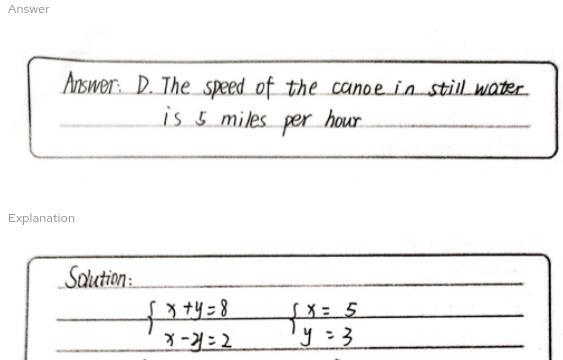 Answer
Answer: D. The speed of the canoe in still water
is 5 miles per hour
Explanation
Solution:
{ x+y=8 { x= 5
x-y=2 y =3